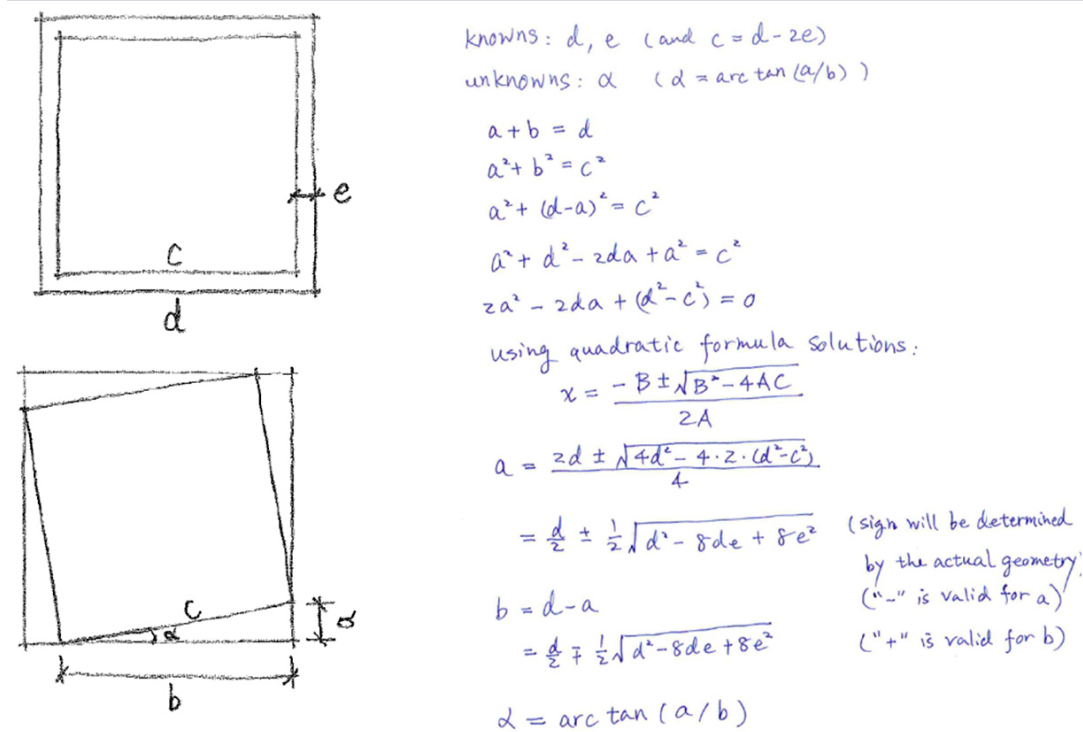 c
d
e
c
α
a
b
knowns: d, e (and c = d - 2e)
unknowns: α (α = arc tan (a/b))
a + b = d
a² + b² = c²
a² + (d-a)² = c²
a² + d² - 2da + a² = c²
2a² - 2da + (d² - c²) = 0
using quadratic formula solutions:
x = (-B ± √(B² - 4AC)) / 2A
a = (2d ± √(4d² - 4·2·(d² - c²))) / 4
= d/2 ± 1/2 √(d² - 8de + 8e²) (sign will be determined
by the actual geometry;
("-" is valid for a)
b = d - a
= d/2 ∓ 1/2 √(d² - 8de + 8e²) ("+" is valid for b)
α = arc tan (a/b)